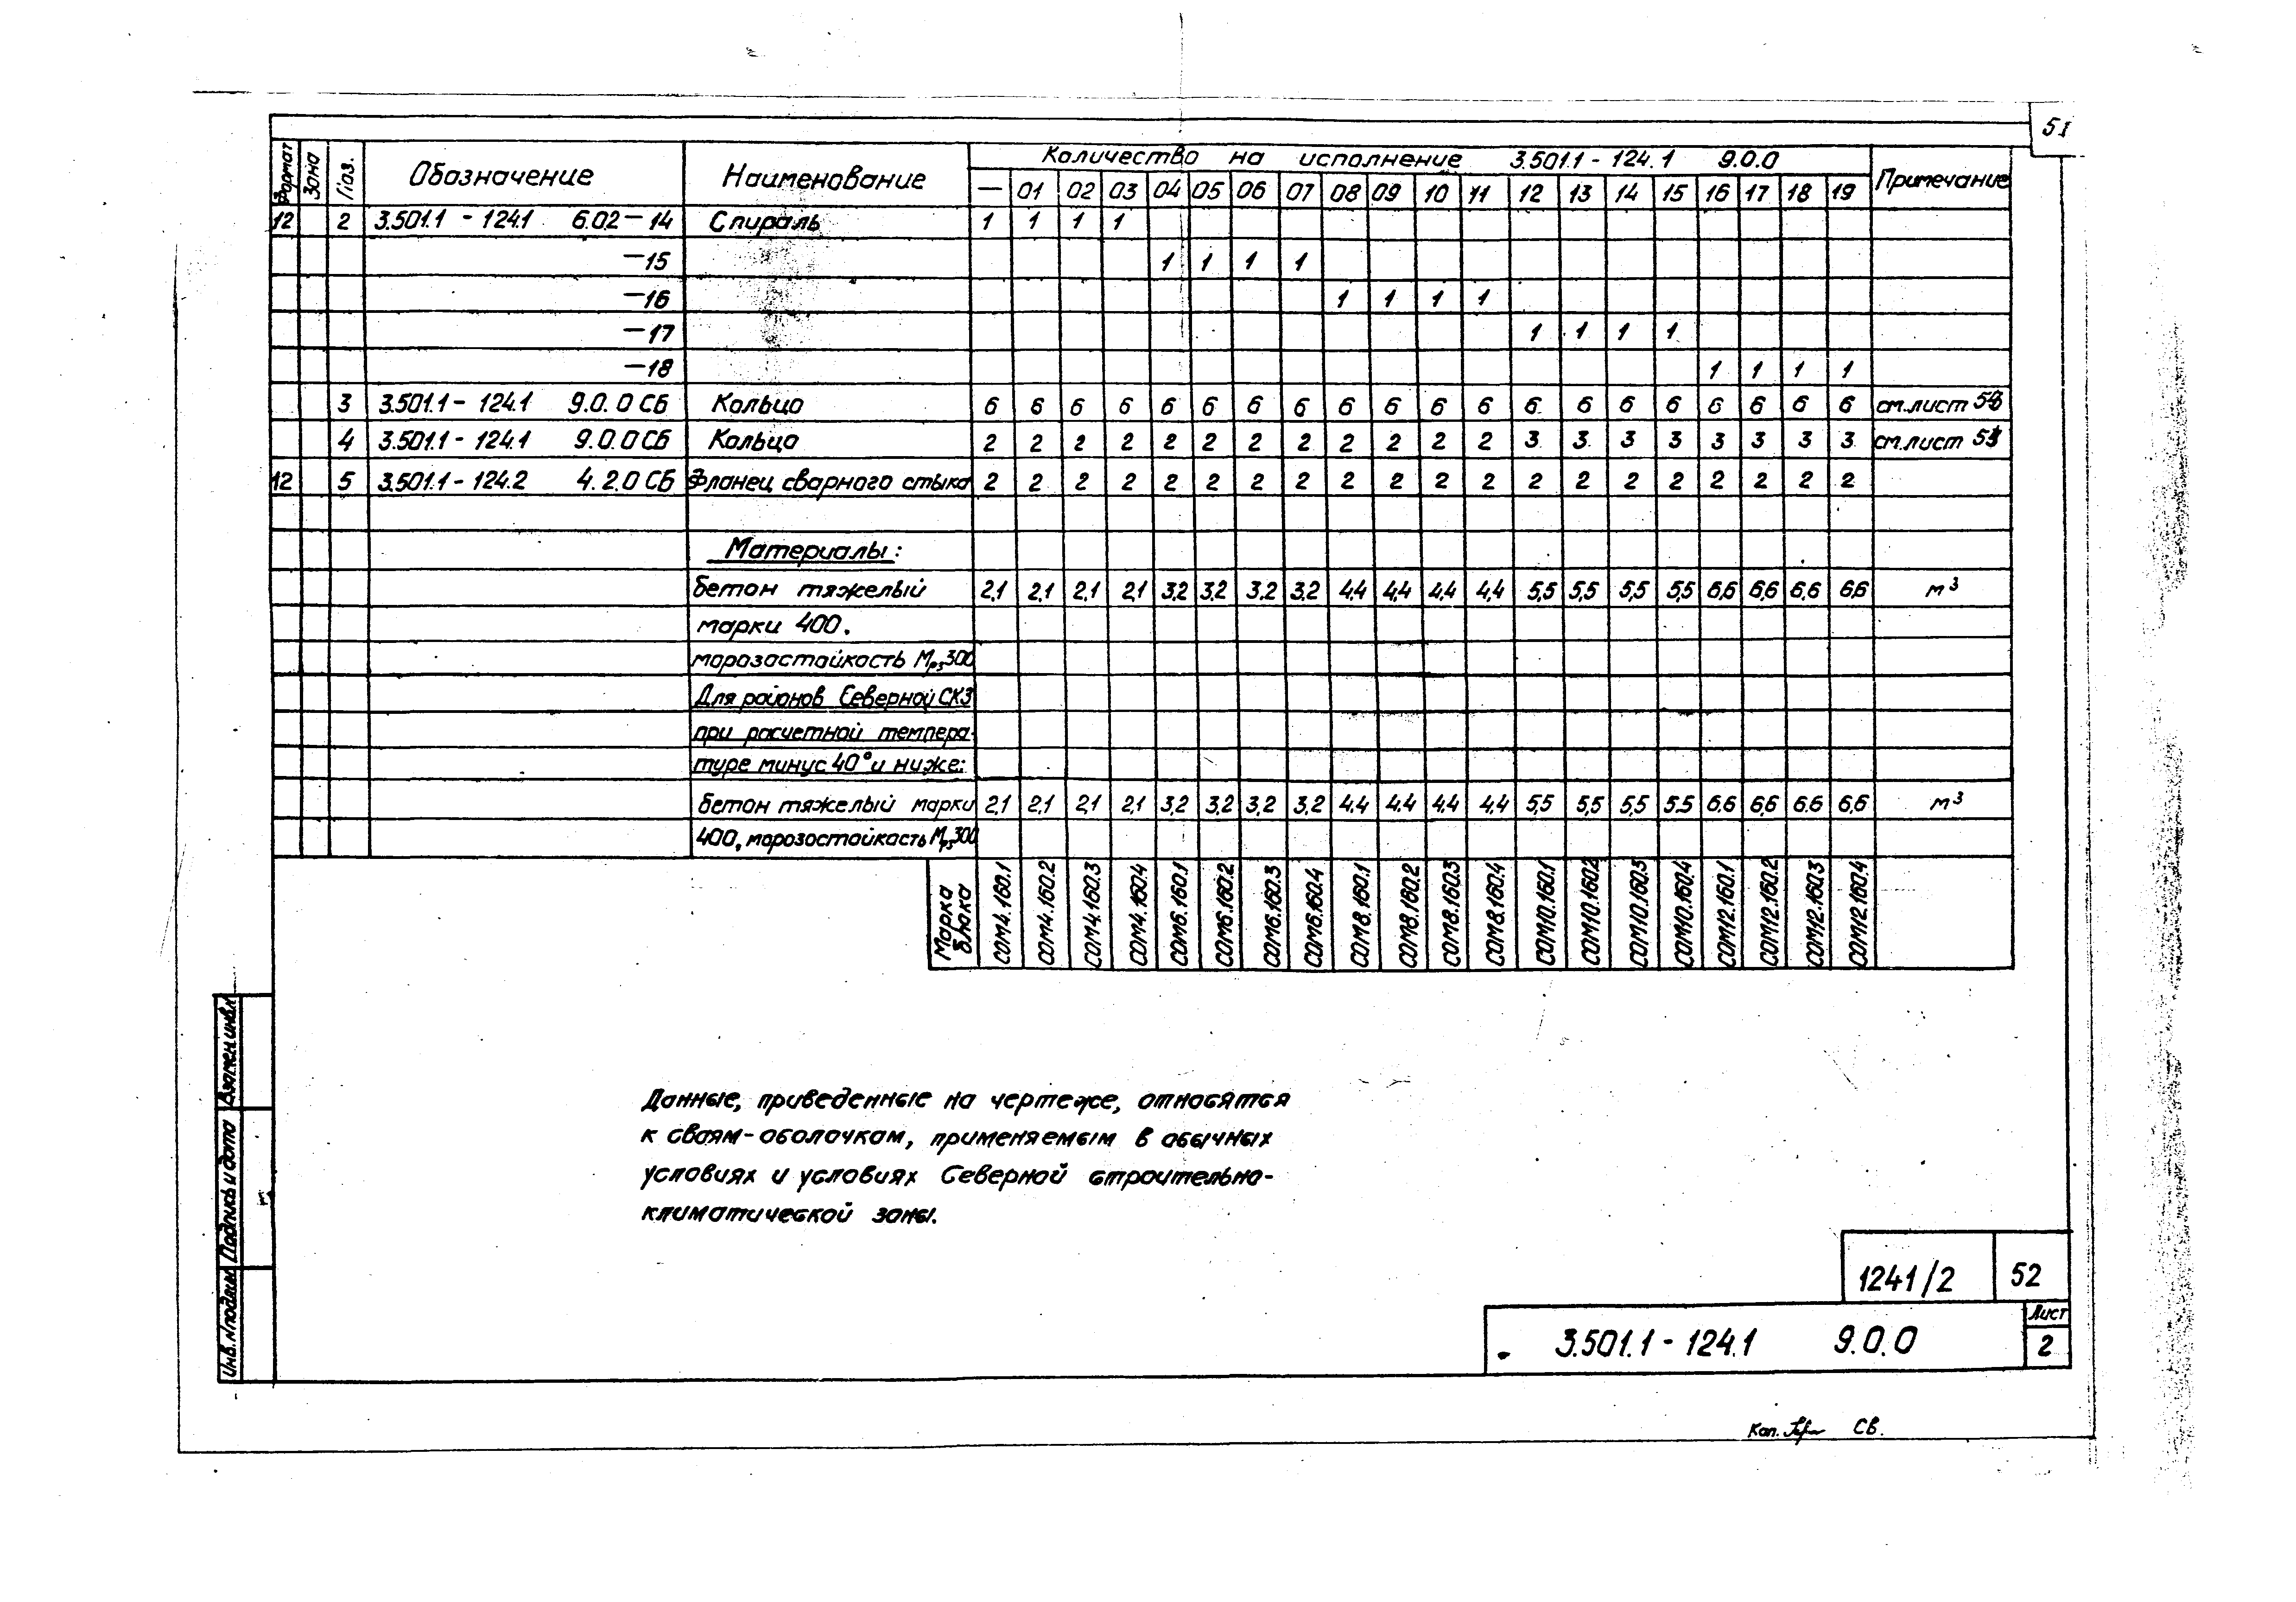 51
Формат Зона Поз. Обозначение Наименование Количество на исполнение 3.501.1-124.1 9.0.0 Примечание
— 01 02 03 04 05 06 07 08 09 10 11 12 13 14 15 16 17 18 19
12 2 3.501.1-124.1 6.02-14 Спираль 1 1 1 1
-15 1 1 1 1
-16 1 1 1 1
-17 1 1 1 1
-18 1 1 1 1
3 3.501.1-124.1 9.0.0СБ Кольцо 6 6 6 6 6 6 6 6 6 6 6 6 6 6 6 6 6 6 6 6 см.лист
4 3.501.1-124.1 9.0.0СБ Кольцо 2 2 2 2 2 2 2 2 2 2 2 2 3 3 3 3 3 3 3 3 см.лист
12 5 3.501.1-124.2 4.2.0СБ Фланец сварного стыка 2 2 2 2 2 2 2 2 2 2 2 2 2 2 2 2 2 2 2 2
Материалы:
бетон тяжелый 2,1 2,1 2,1 2,1 3,2 3,2 3,2 3,2 4,4 4,4 4,4 4,4 5,5 5,5 5,5 5,5 6,6 6,6 6,6 6,6 м³
марки 400.
морозостойкость Мрз300
Для районов Северной СКЗ
при расчетной темпера-
туре минус 40° и ниже:
бетон тяжелый марки 2,1 2,1 2,1 2,1 3,2 3,2 3,2 3,2 4,4 4,4 4,4 4,4 5,5 5,5 5,5 5,5 6,6 6,6 6,6 6,6 м³
400, морозостойкость Мрз300
Марка блока СОМ4.160.1 СОМ4.160.2 СОМ4.160.3 СОМ4.160.4 СОМ6.160.1 СОМ6.160.2 СОМ6.160.3 СОМ6.160.4 СОМ8.160.1 СОМ8.160.2 СОМ8.160.3 СОМ8.160.4 СОМ10.160.1 СОМ10.160.2 СОМ10.160.3 СОМ10.160.4 СОМ12.160.1 СОМ12.160.2 СОМ12.160.3 СОМ12.160.4
Данные, приведенные на чертеже, относятся
к сваям-оболочкам, применяемым в обычных
условиях и условиях Северной строительно-
климатической зоны.
Взамен инв.№
Подпись и дата
Инв.№подл.
1241/2 52
3.501.1-124.1 9.0.0 Лист
2
Коп. СВ.